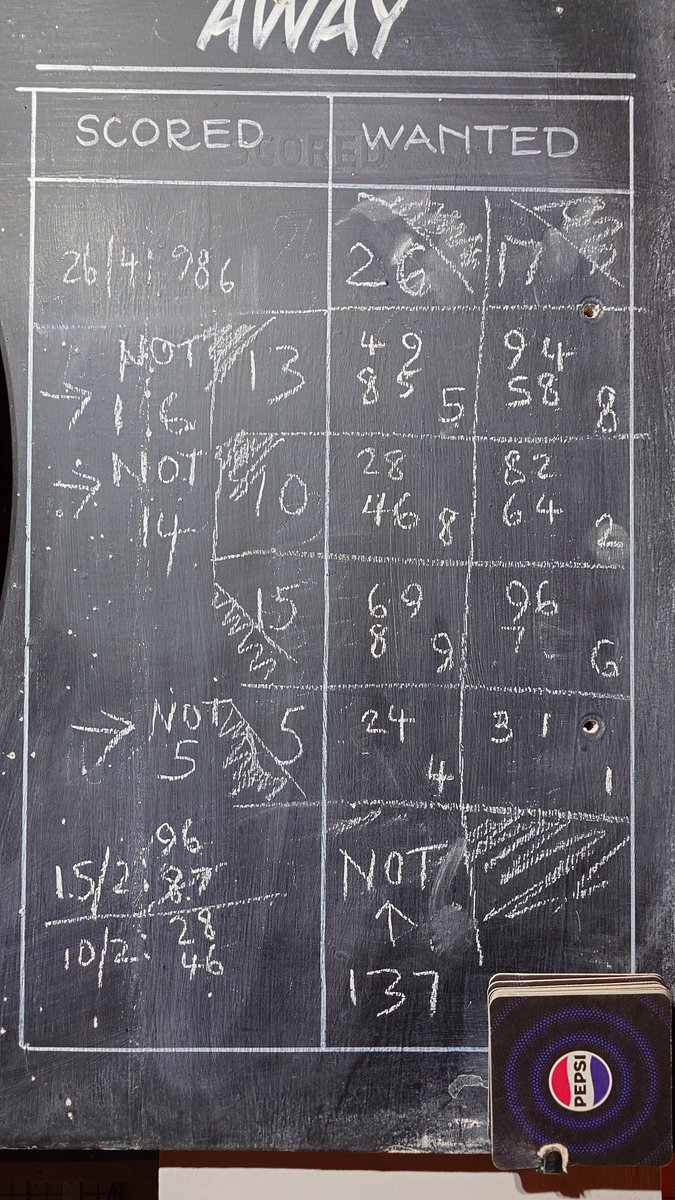 AWAY
SCORED WANTED
26/4: 986 26 17
NOT 13 49 94
→ 16 85 5 58 8
→ NOT 10 28 82
14 46 8 64 2
15 69 96
8 9 7 6
→ NOT 5 24 31
5 4 1
96
15/2: 87 NOT
28 ↑
10/2: 46 137
PEPSI